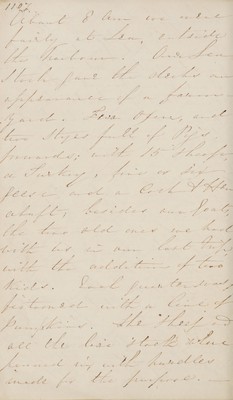 1127
About 8 Am we were
fairly at Sea, outside
the harbour. Our Live
Stock gave the decks an
appearance of a farm
yard. Five Open, and
two Styes full of Pigs
forward; with 15 Sheep,
a Turkey, five or six
geese and a Cock & Hen
abaft; besides our Goats,
the two old ones we had
with us, in our last
with the addition of two
Kids. Each quarter deck,
festooned with a line of
Pumpkins. The Sheep &
all the Live Stock
penned in, with hurdles
made for the purpose.